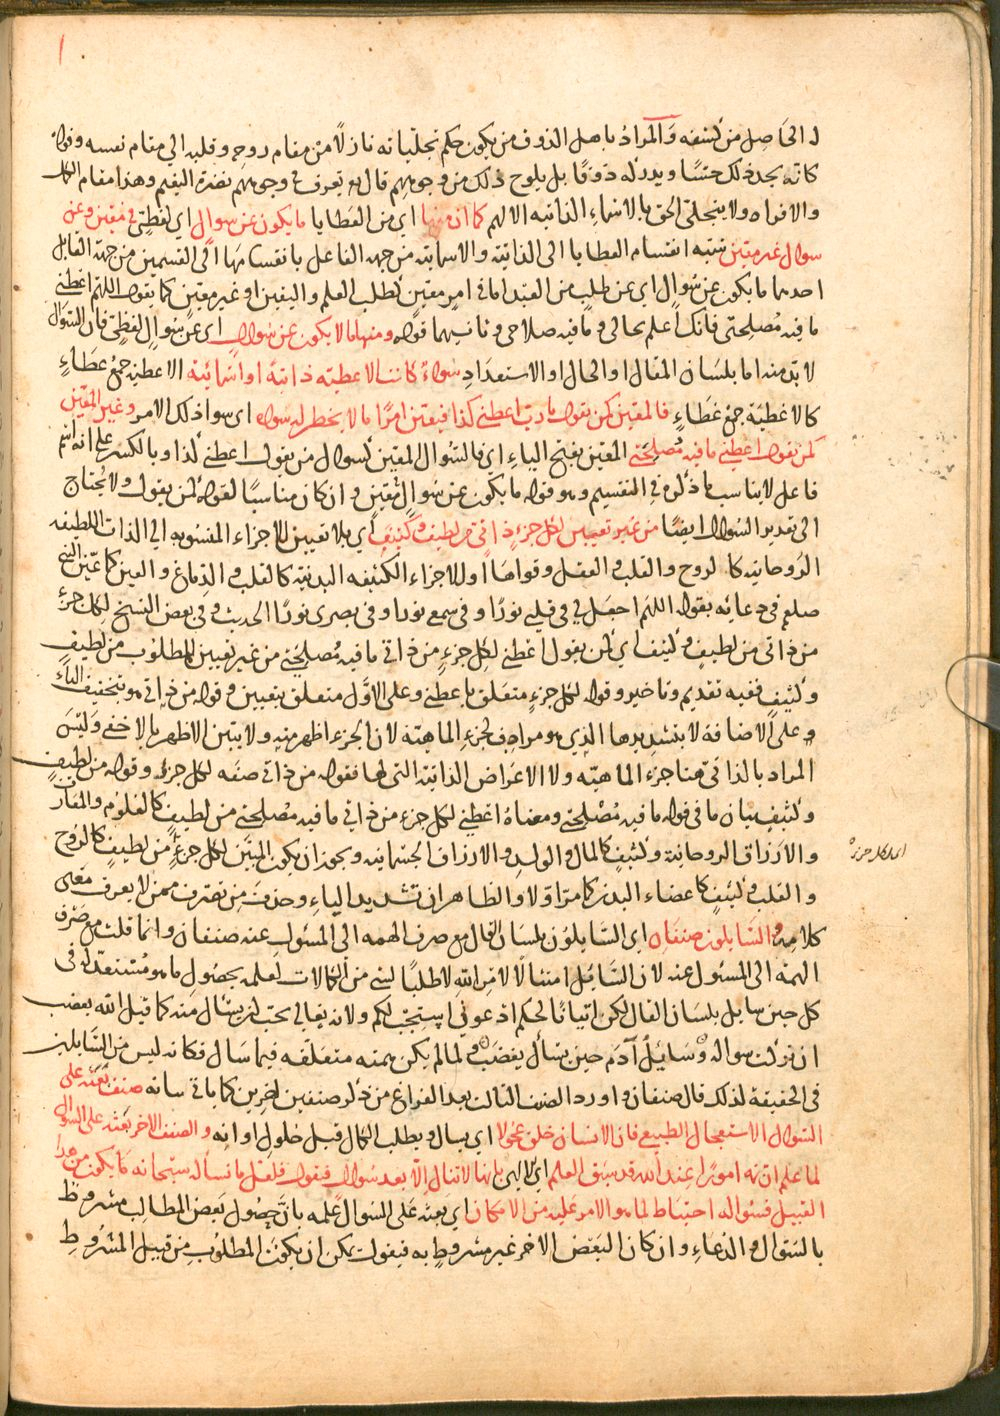 له الحاصل من كشفه والمراد باهل الذوق من يكون حكم تجلياته نازلا من مقام روحه وقلبه الى مقام نفسه وقواه
كانه يجد ذلك حسا ويدركه ذوقا بل يلوح ذلك من وجوههم قال تع تعرف في وجوههم نضرة النعيم وهذا مقام الكمل
والافراد ولا يتجلى الحق بالاسماء الذاتيه الا لهم كما ان منها اى من العطايا ما يكون عن سوال اى لفظى فى معين وعن
سوال غير معين تنبيه انقسام العطايا الى الذاتية والاسمائية من جهة الفاعل بانقسامها الى القسمين من جهة القابل
احدهما ما يكون عن سوال اى عن طلب من العبد اما فى امر معين كطلب العلم واليقين او غير معين كما يقول اللهم اعطنى
ما فيه مصلحتى فانك اعلم بحالى وما فيه صلاحى وثانيهما قوله ومنها ما لا يكون عن سوال اى عن سوال لفظى فان السوال
لا بد منه اما بلسان المقال او الحال او الاستعداد سواء كانت الاعطيه ذاتية او اسمائية الاعطية جمع عطاء
كالاغطية جمع غطاء فالمعين كمن يقول يا رب اعطنى كذا فيعين امرا ما لا يخطر له سواه اى سوا ذلك الامر وغير المعين
كمن يقول اعطنى ما فيه مصلحتى المعين بفتح الياء اى فالسوال المعين كسوال من يقول اعطنى كذا وبالكسر على انه اسم
فاعل لا يناسب ما ذكره فى التقسيم وهو قوله ما يكون عن سوال معين وان كان مناسبا لقوله كمن يقول ولا يحتاج
الى تقدير السوال ايضا من غير تعيين لكل جزء ذاتى من لطيف وكثيف اى بلا تعيين للاجزاء المنسوبه الى الذات اللطيفه
الروحانية كالروح والقلب والعقل وقواها او للاجزاء الكثيفه البدنية كالقلب والدماغ والعين كما عين النبى
صلعم فى دعائه بقوله اللهم اجعل لى فى قلبى نورا وفى سمعى نورا وفى بصرى نورا الحديث وفى بعض النسخ لكل جزء
من ذاتى من لطيف وكثيف اى كمن يقول اعطنى لكل جزء من ذاتى ما فيه مصلحتى من غير تعيين للمطلوب من لطيف
وكثيف ففيه تقديم وتاخير وقوله لكل جزء متعلق باعطنى وعلى الاول متعلق بتعيين وقوله من ذاتى هو بتخفيف الياء
وعلى الاضافة لا بتشديدها الذى هو مرادف لجزء الماهية لان الجزء اظهر منه ولا يبين الاظهر بالاخفى وليس
المراد بالذاتى هنا جزء الماهيه ولا الاعراض الذاتية التى لها فقوله من ذاتى صفه لكل جزء وقوله من لطيف
وكثيف بيان ما فى قوله ما فيه مصلحتى ومعناه اعطنى لكل جزء من ذاتى ما فيه مصلحتى من لطيف كالعلوم والمعارف
والارزاق الروحانية وكثيف كالمال والولد والارزاق الجسمانيه ويجوز ان يكون المبين لكل جزء من لطيف كالروح
والقلب وكثيف كاعضاء البدن كما مر اولا والظاهر ان تشديد الياء وحذف من تصرف ممن لا يعرف معنى
كلامه والسايلون صنفان اى السايلون بلسان القال مع صرف الهمه الى المسئول عنه صنفان وانما قلت مع صرف
الهمة الى المسئول عنه لان السايل امتثالا لامر الله لا طلبا لشئ من الكمالات لعلمه بحصول ما هو مستعد له فى
كل حين سايل بلسان القال لكن اتيانا لحكم ادعونى استجب لكم ولانه تعالى يحب ان يسال منه كما قيل الله يغضب
ان تركت سواله وسايل آدم حين يسأل يغضب ولما لم يكن همته متعلقه فيما سال فكانه ليس من السايلين
فى الحقيقة لذلك قال صنفان واورد الصنف الثالث بعد الفراغ من ذكر صنفين اخرين كما ياتى بيانه صنف بعثه على
السوال الاستعجال الطبيعى فان الانسان خلق عجولا اى يسال ويطلب الكمال قبل حلول اوانه والصنف الاخر بعثه على السوال
لما علم ان ثم امورا عند الله قد سبق العلم اى الالهى بانها لا تنال الا بعد سوال فيقول فلعل ما نسأله سبحانه ما يكون من هذا
القبيل فسواله احتياط لما هو الامر عليه من الامكان اى بعثه على السوال علمه بان حصول بعض المطالب مشروط
بالسوال والدعاء وان كان البعض الاخر غير مشروط به فيقول يمكن ان يكون المطلوب من قبيل المشروط
اى لكل جزء